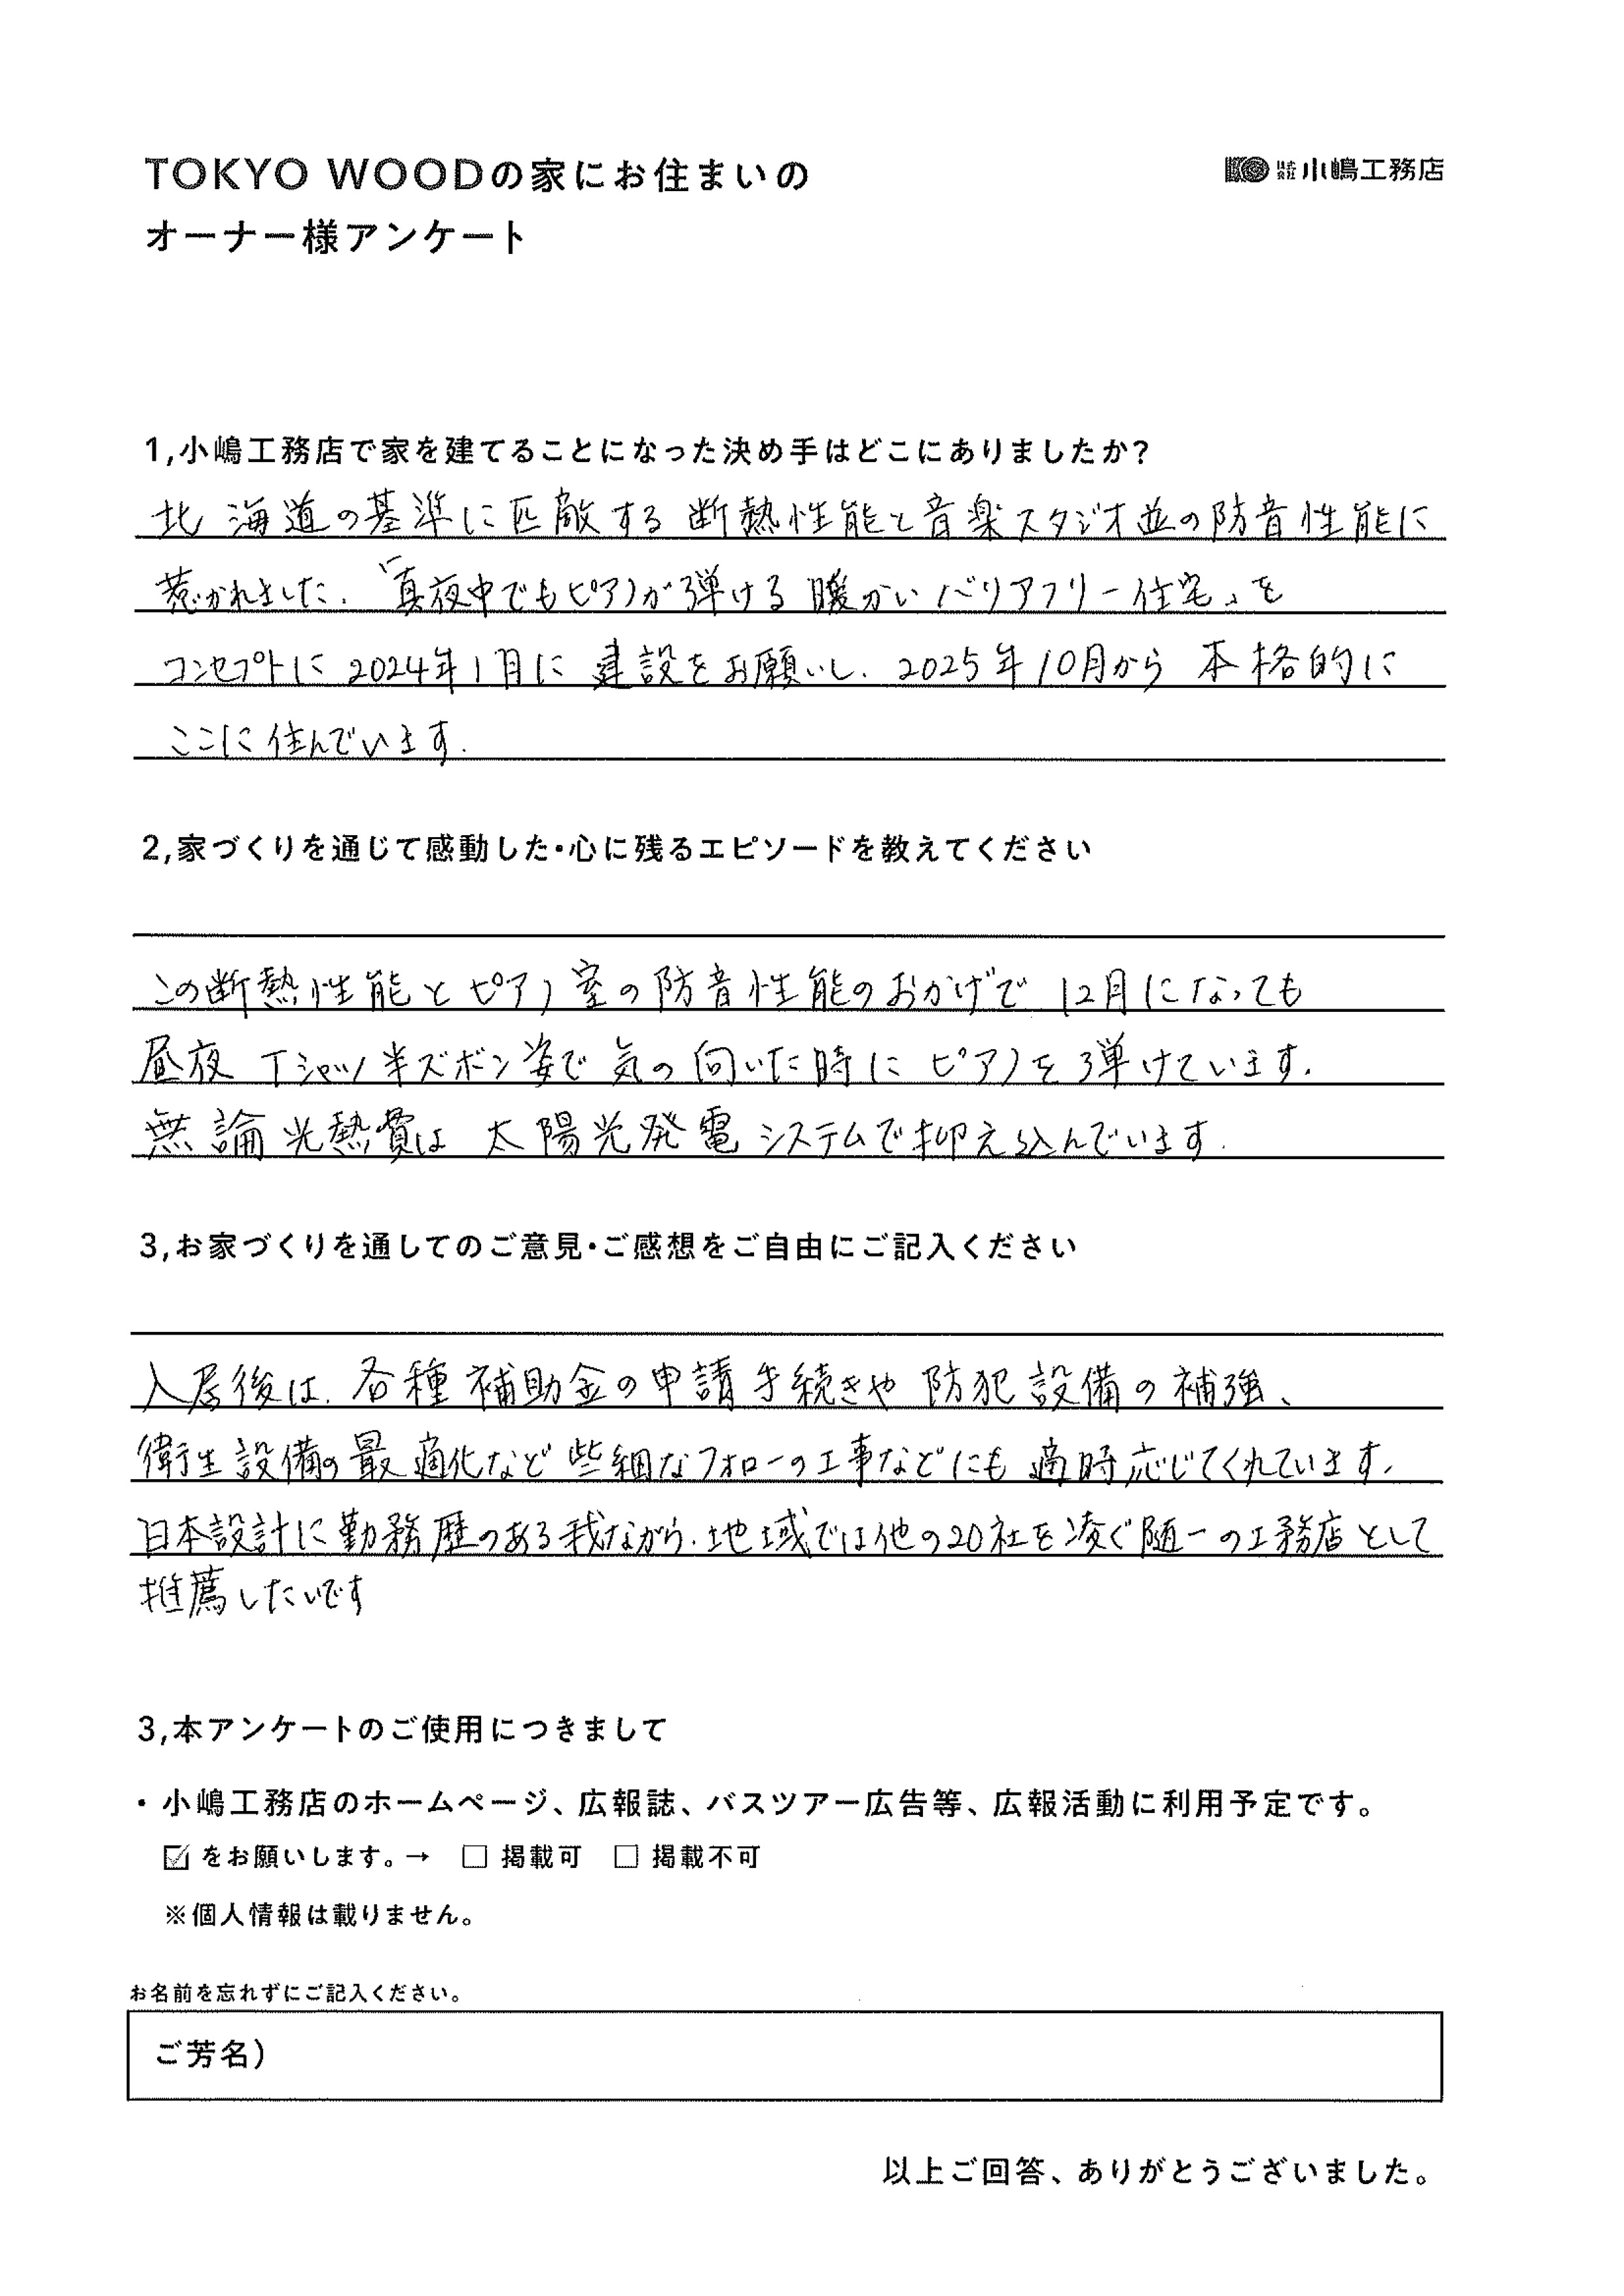 TOKYO WOODの家にお住まいの
オーナー様アンケート
株式会社 小嶋工務店
1,小嶋工務店で家を建てることになった決め手はどこにありましたか?
北海道の基準に匹敵する断熱性能と音楽スタジオ並の防音性能に
惹かれました.「真夜中でもピアノが弾ける暖かいバリアフリー住宅」を
コンセプトに2024年1月に建設をお願いし.2025年10月から本格的に
ここに住んでいます.
2,家づくりを通じて感動した・心に残るエピソードを教えてください
この断熱性能とピアノ室の防音性能のおかげで12月になっても
昼夜Tシャツ半ズボン姿で気の向いた時にピアノを弾けています.
無論光熱費は太陽光発電システムで抑え込んでいます.
3,お家づくりを通してのご意見・ご感想をご自由にご記入ください
入居後は.各種補助金の申請手続きや防犯設備の補強、
衛生設備の最適化など些細なフォローの工事などにも適時応じてくれています.
日本設計に勤務歴のある我ながら.地域では他の20社を凌ぐ随一の工務店として
推薦したいです
3,本アンケートのご使用につきまして
・小嶋工務店のホームページ、広報誌、バスツアー広告等、広報活動に利用予定です。
☑をお願いします。→ □ 掲載可 □ 掲載不可
※個人情報は載りません。
お名前を忘れずにご記入ください。
ご芳名)
以上ご回答、ありがとうございました。